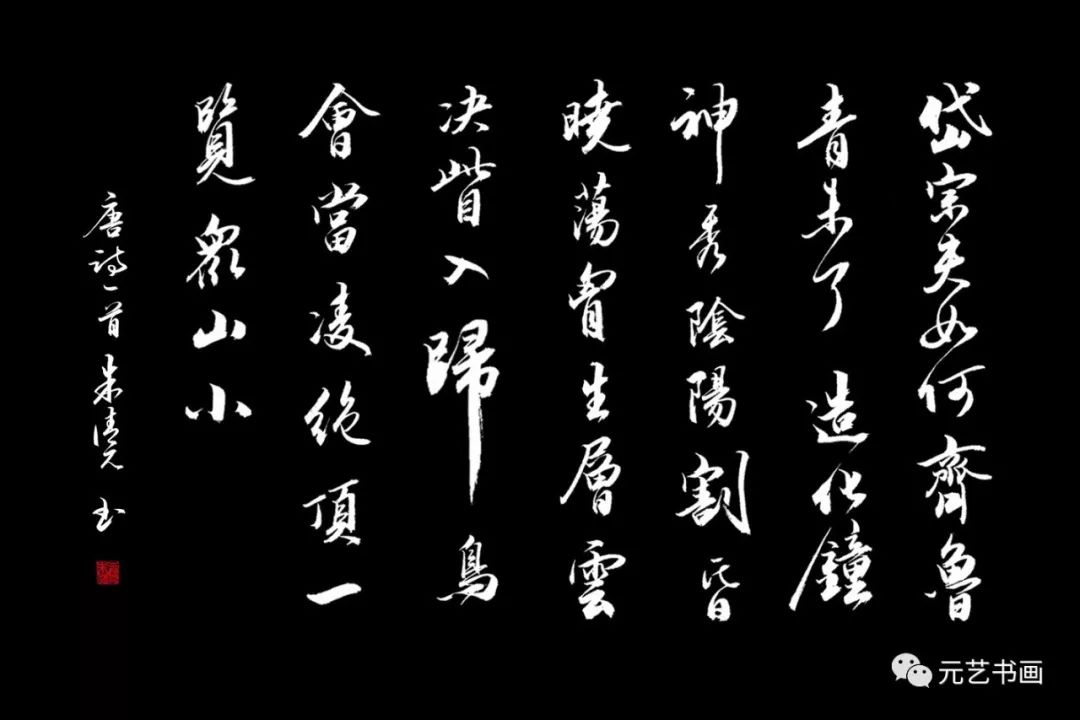 岱宗夫如何齊魯
青未了造化鐘
神秀陰陽割昏
曉蕩胷生層雲
决眥入歸鳥
會當凌絶頂一
覽衆山小
唐诗一首朱清元书
元艺书画